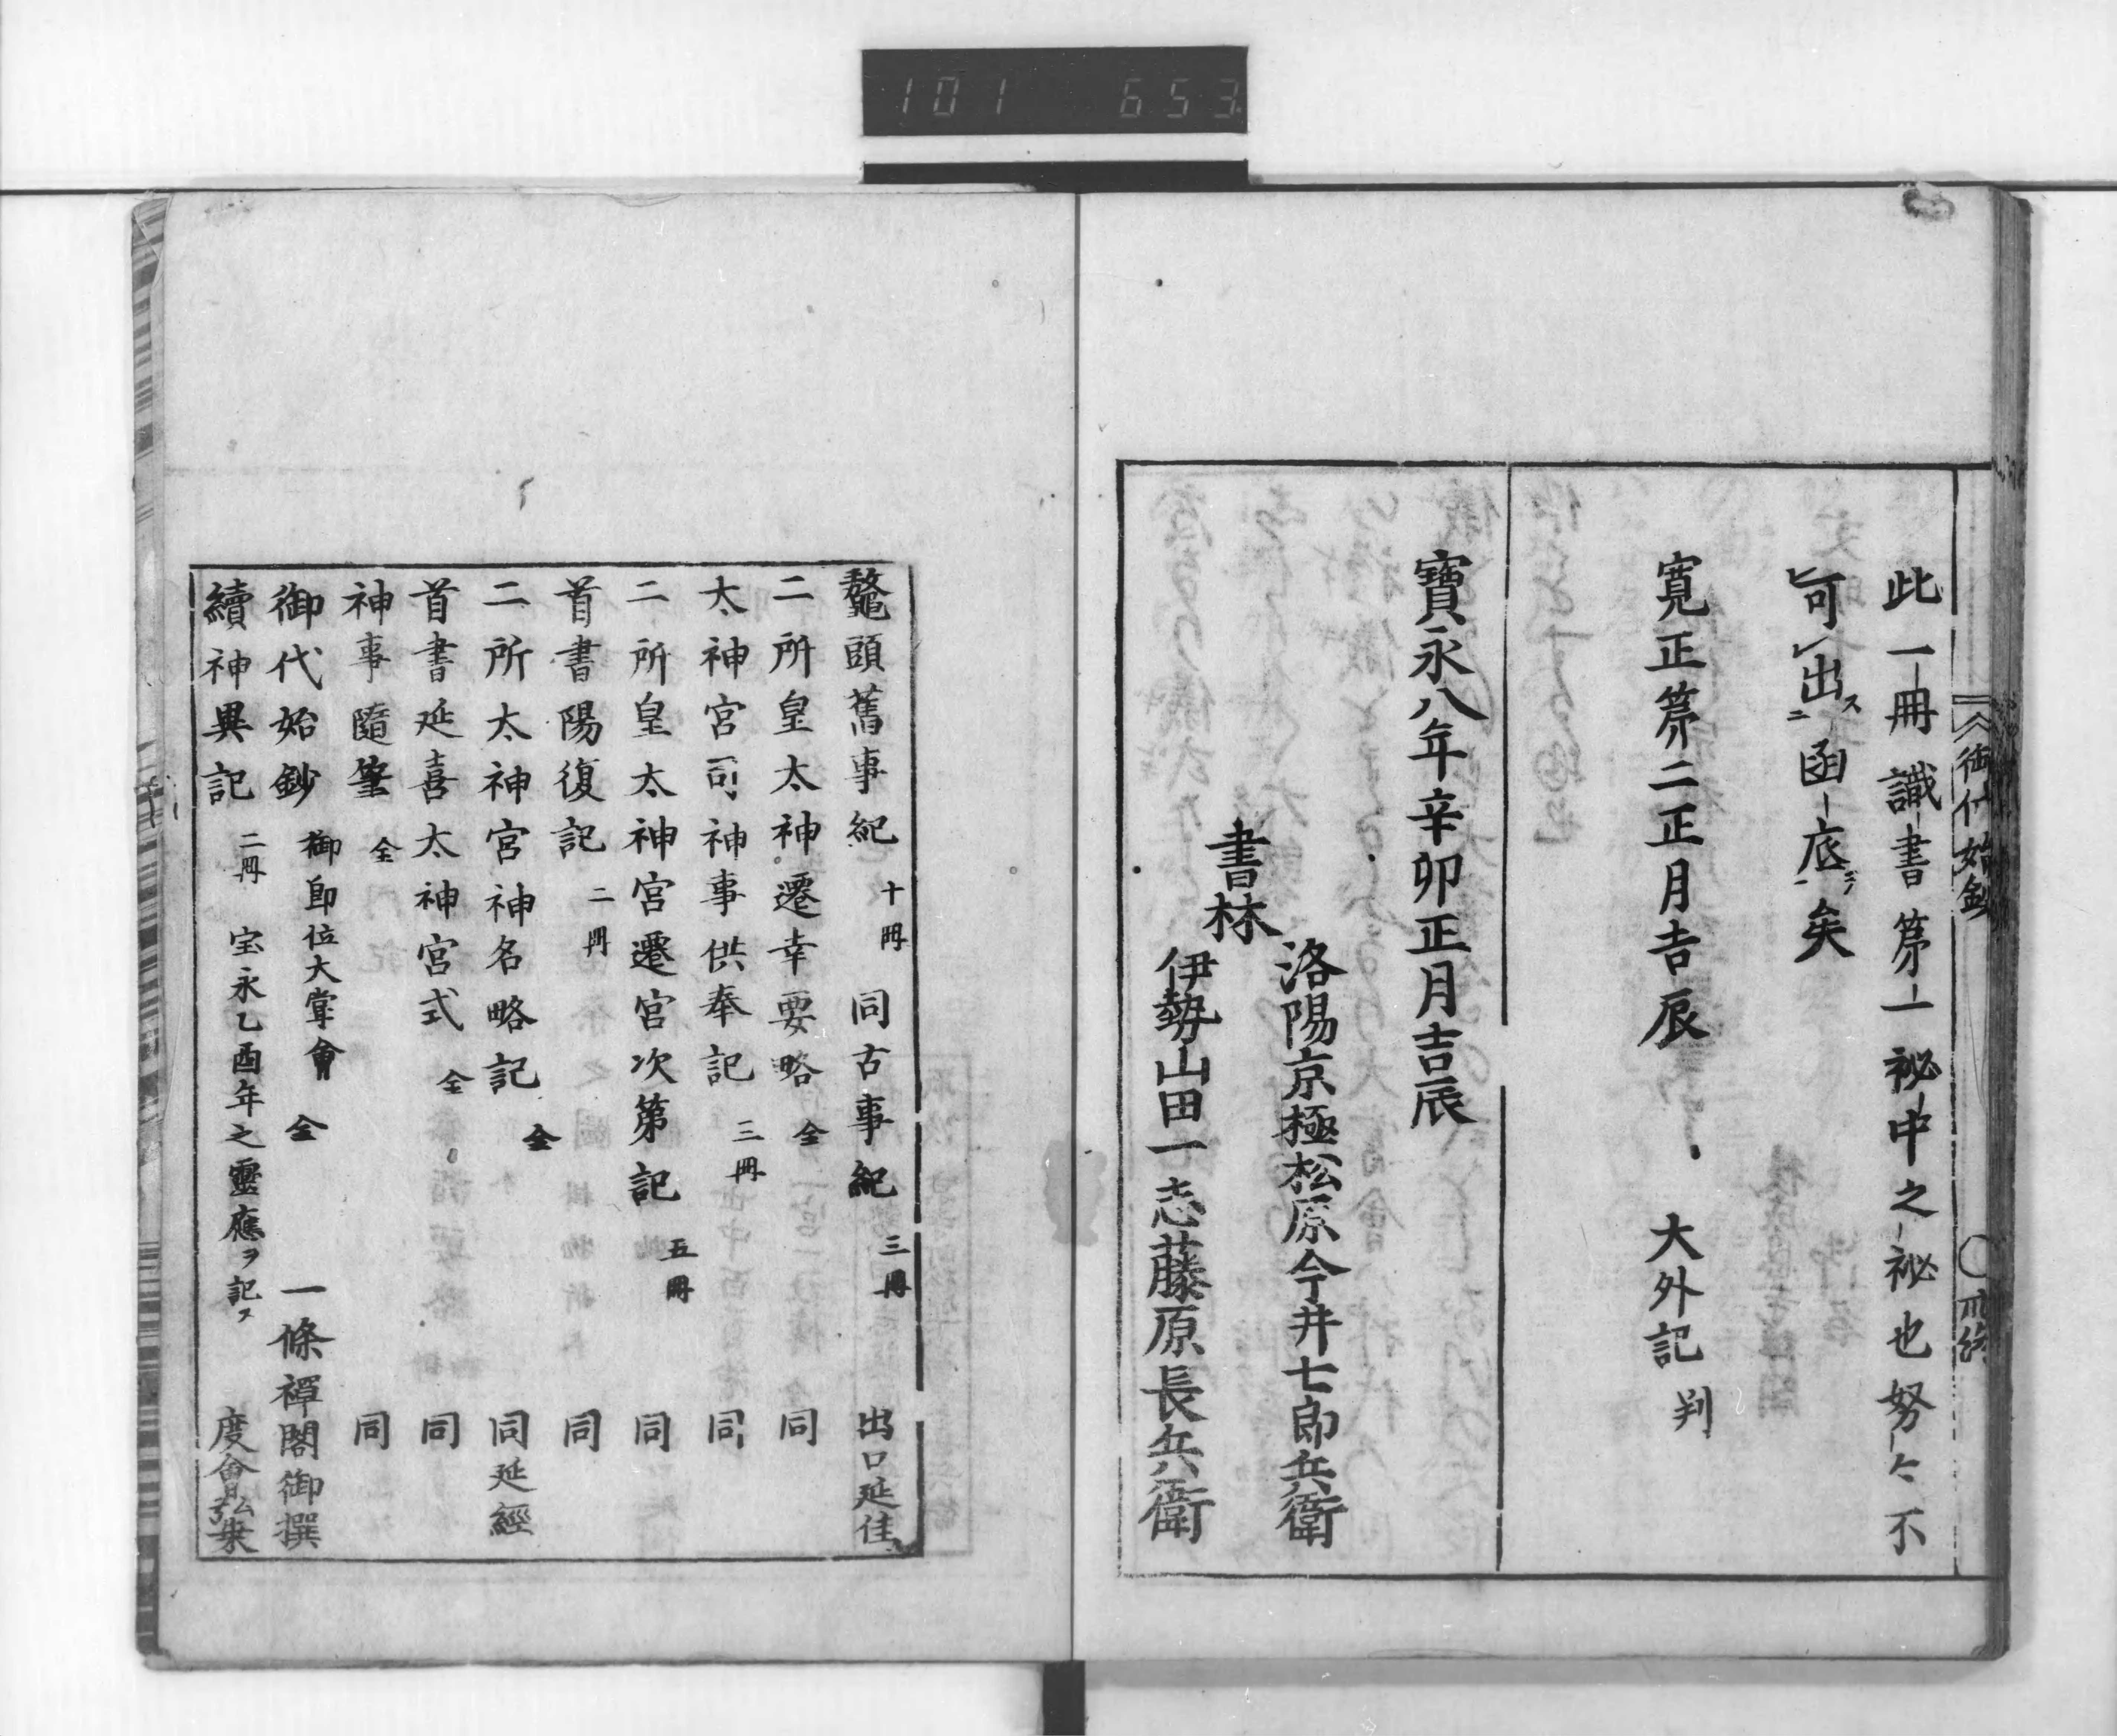 101 653
御代始鈔
此一冊識書第一祕中之祕也努々不
可出函底矣
寛正第二正月吉辰 大外記 判
寶永八年辛卯正月吉辰
書林
洛陽京極松原今井七郎兵衛
伊勢山田一志藤原長兵衛
鼇頭舊事紀 十冊 同古事紀 三冊 出口延佳
二所皇太神遷幸要略 全 同
太神宮司神事供奉記 三冊 同
二所皇太神宮遷宮次第記 五冊 同
首書陽復記 二冊 同
二所太神宮神名略記 全 同延經
首書延喜太神宮式 全 同
神事隨筆 全 同
御代始鈔 御即位大掌會 全 一條禪閤御撰
續神異記 二冊 宝永乙酉年之靈應ヲ記ス 度會弘乗